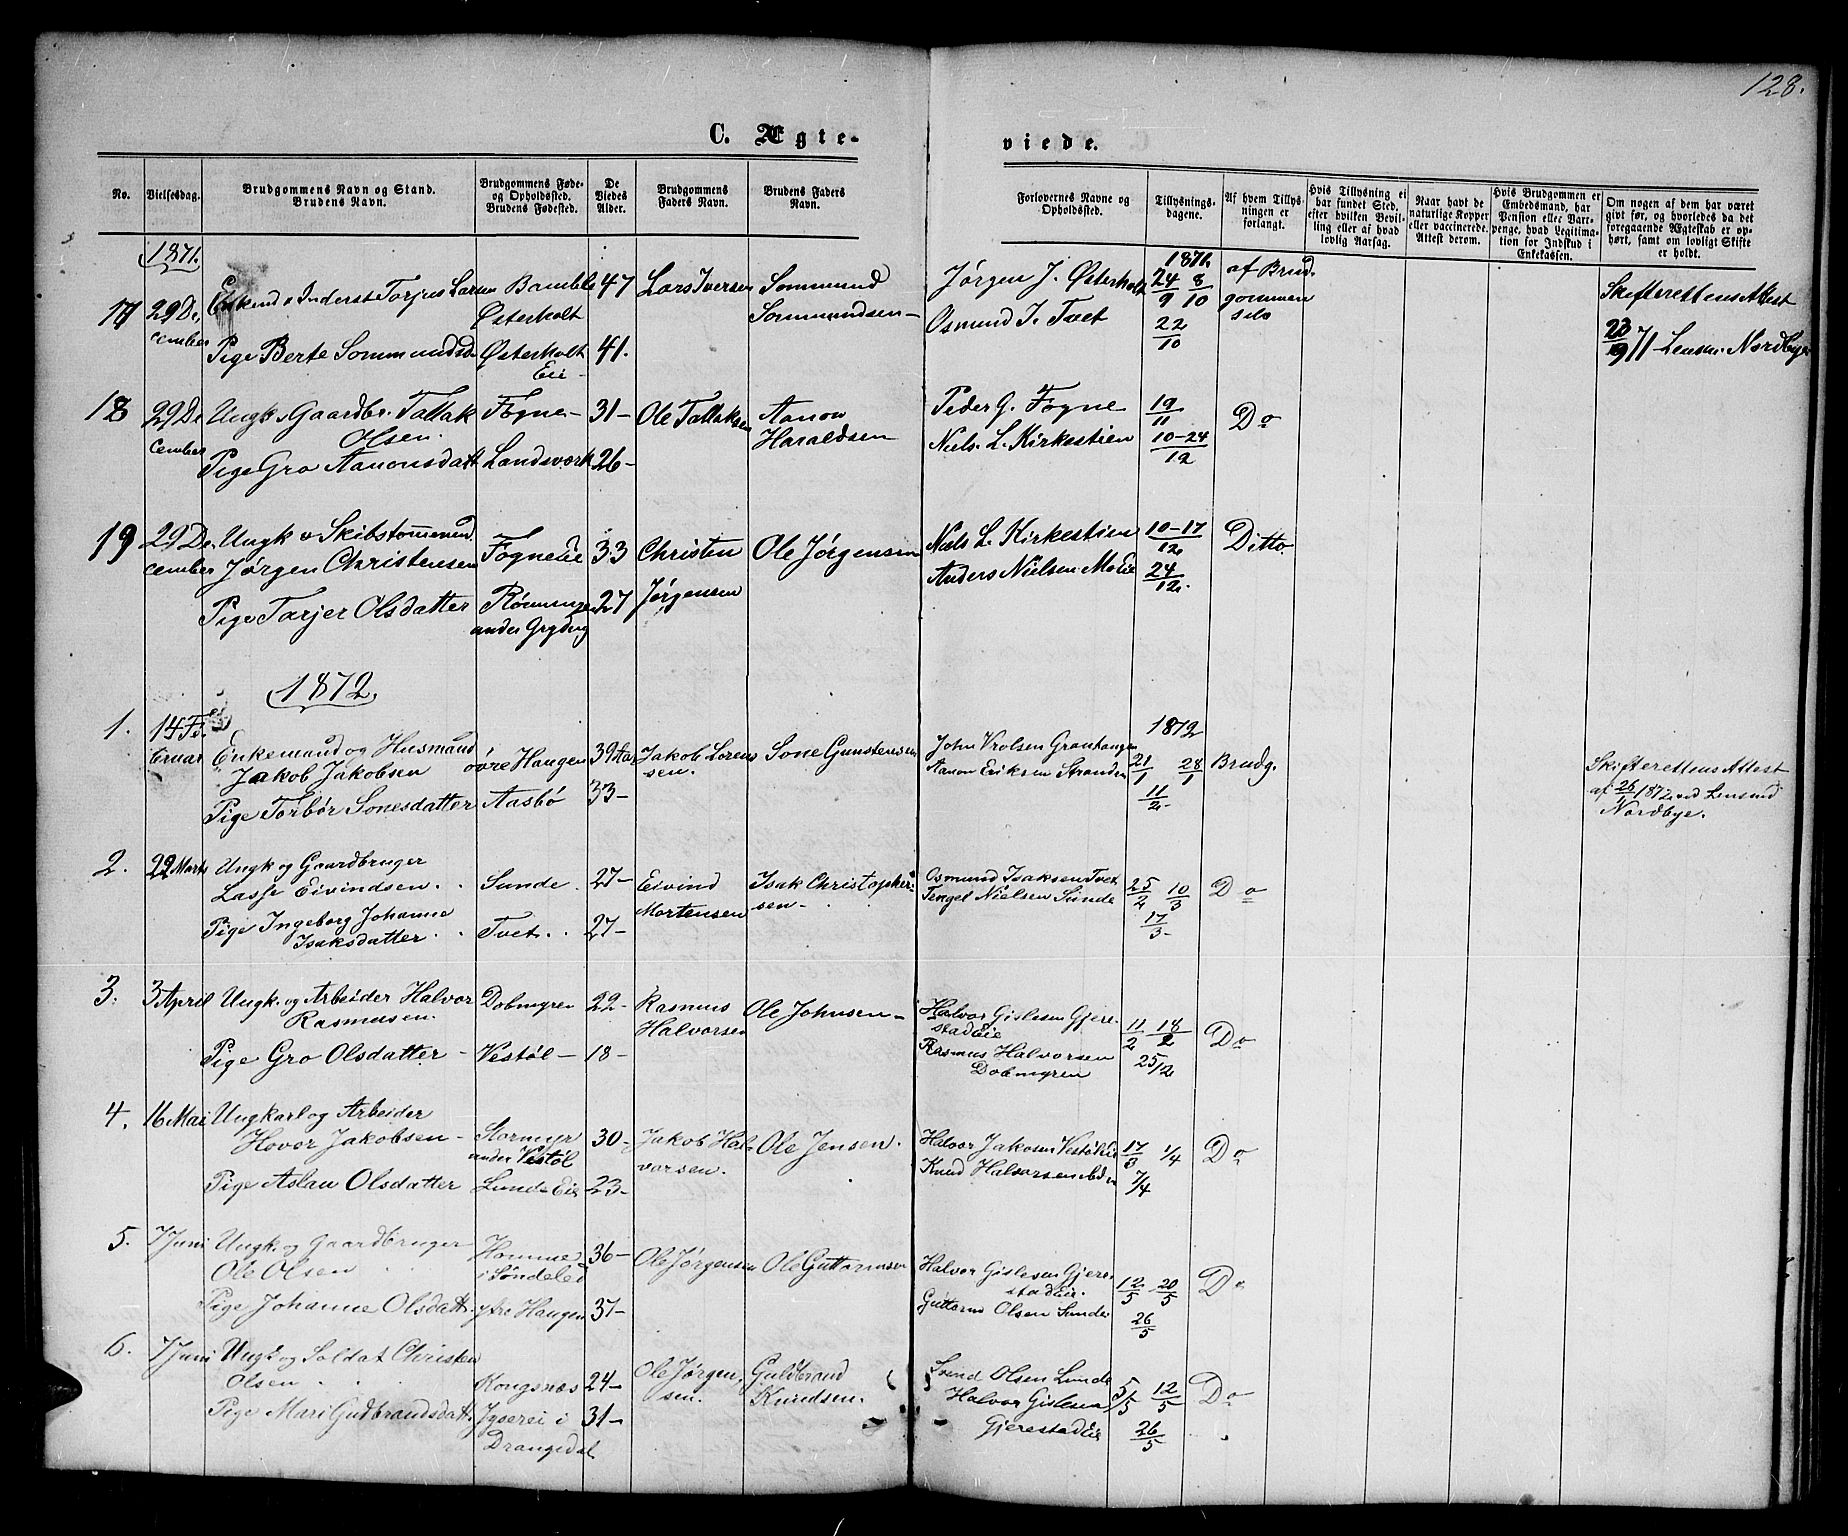 128.
C. Ægte-
viede.
No.
Vielsesdag.
Brudgommens Navn og Stand.
Brudens Navn.
Brudgommens Føde-
og Opholdssted.
Brudens Fødested.
De
Viedes
Alder.
Brudgommens
Faders Navn.
Brudens Faders
Navn.
Forlovernes Navne og
Opholdssted.
Tillysnings-
dagene.
Af hvem Tillys-
ningen er
forlangt.
Hvis Tillysning ei
har fundet Sted,
efter hvilken Bevil-
ling eller af hvad
lovlig Aarsag.
Naar havt de
naturlige Kopper
eller vaccinerede.
Attest derom.
Hvis Brudgommen er
Embedsmand, har
Pension eller Vart-
penge, hvad Legitima-
tion for Indskud i
Enkekassen.
Om nogen af dem har været
givt før, og hvorledes da det
foregaaende Ægteskab er op-
hørt, samt om lovligt Skifte
er holdt.
1871.
17 29 De-
cember
Enkemd o Inderst Torjus Larsen
Bamble
Østerholt
47
Lars Iversen
Sommund
Sommundsen-
Jørgen J. Østerholt
Osmund I. Tvet
1871.
24/9 8/10
22/10
af Brud-
gommen
selv
Skifterettens Attest
23/9 71 Lensm. Nordbye
Pige Berte Sommundsd.
Østerholt
Eie-
41.
18 29 De
cember
Ungk o Gaardbr. Tallak
Olsen.
Fogne-
31-
Ole Tallaksen
Aanon
Haraldsen
Peder G. Fogne
Niels L. Kirkestien
19/11
10-24/12
Do
Pige Gro Aanonsdatt
Landsverk
26-
19 29 De-
cember
Ungk o Skibstømmermd
Jørgen Christensen
Fogneeie
33
Christen
Jørgensen
Ole Jørgensen
Niels L. Kirkestien
Anders Nielsen Moeie
10-17/12
24/12.
Ditto
Pige Tarjer Olsdatter
Rønninge
under Gryting
27
1872
1. 14 Fe-
bruar
Enkemand og Husmand
Jakob Jakobsen
øvre Haugen
39 Aar
Jakob Lorens
sen.
Sone Gunstensen
John Vrolsen Grauhaugen
Aanon Eriksen Stranden
1872
21/1 28/1
11/2
Brudg.
Skifterettens Attest
af 26/1 1872 ved Lensmd
Nordbye.
Pige Torbør Sonesdatter
Aasbø
33-
2. 22 Marts
Ungk og Gaardbruger
Lasse Eivindsen.
Sunde.
27-
Eivind
Mortensen
Isak Christopher
sen-
Osmund Isaksen Tvet
Tengel Nielsen Sunde
25/2 10/3
17/3
Do
Pige Ingeborg Johanne
Isaksdatter
Tvet.
27-
3. 3 April
Ungk. og Arbeider Halvor
Rasmusen.
Dobmyren
22-
Rasmus
Halvorsen
Ole Johnsen-
Halvor Gislesen Gjere-
stadEie
Rasmus Halvorsen
Dobmyren
11/2 18/2
25/2
Do
Pige Gro Olsdatter-
Vestøl-
18-
4. 16 Mai
Ungkarl og Arbeider
Hovor Jakobsen-
Stormyr
under Vestøl
30-
Jakob Hal-
vorsen.
Ole Jensen.
Halvor Jakosen VestølEie
Knud Halvorsen ibdm
17/3 1/4
7/4
Do
Pige Aslau Olsdatter
Lunde Eie
23-
5. 7 Juni
Ungk. og Gaardbruger
Ole Olsen
Homme
i Søndeled
36-
Ole Jørgensen
Ole Guttormsen
Halvor Gislesen Gjere-
stadEie.
Guttorm Olsen Sunde
12/5 20/5
26/5
Do
Pige Johanne Olsdatt.
ytre Haugen
37-
6. 7 Juni
Ungk. og Soldat Christen
Olsen
Kongsnæs
24-
Ole Jørgen-
sen.
Guldbrand
Knudsen.
Svend Olsen Lunde
Halvor Gislesen
GjerestadEie
5/5 12/5
26/5
Do
Pige Mari Gudbrandsdatt.
i
Drangedal
31-